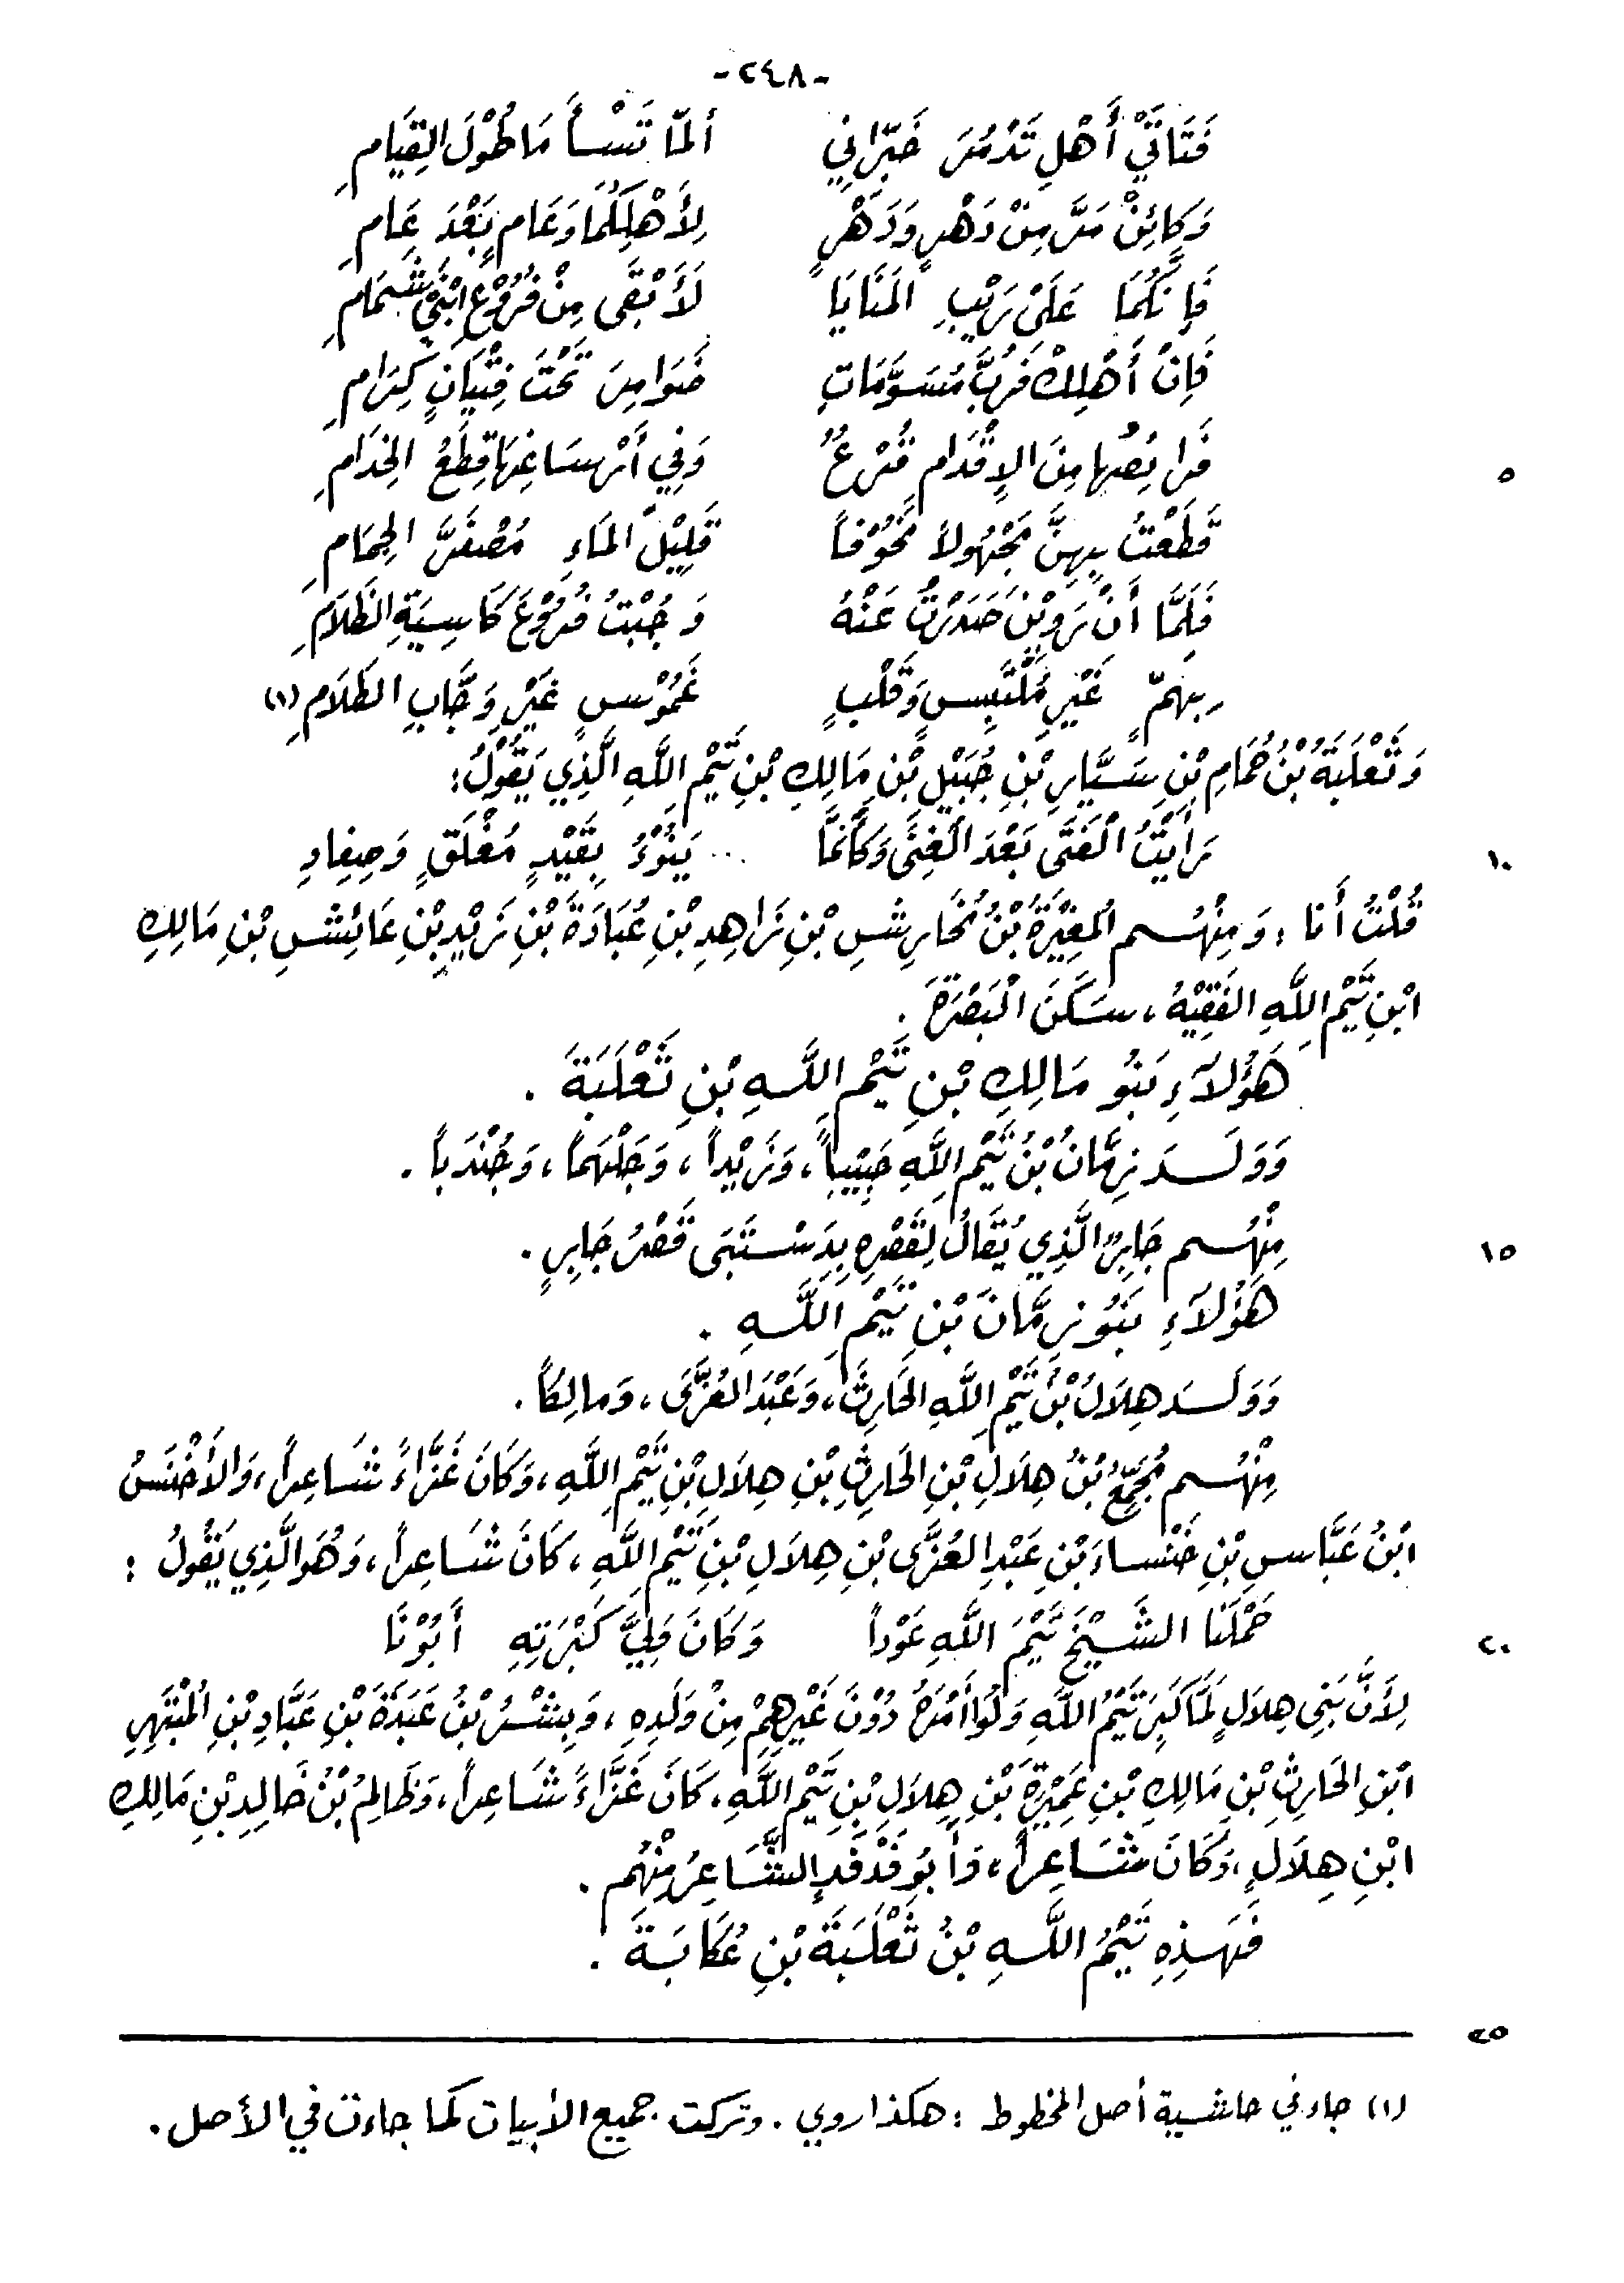 -٢٤٨-
فَتَاتَيْ أَهْلِ تَدْمُرَ خَبِّرَانِي ألمّا تَسْأَمَا طُوْلَ القِيَامِ
وَكَائِنْ مَرَّ مِنْ دَهْرٍ وَدَهْرٍ لِأَهْلِكُمَا وَعَامٍ بَعْدَ عَامِ
فَإِنَّكُمَا عَلَى رَيْبِ المَنَايَا لَأَبْقَى مِنْ فُرُوْعِ ابْنَيْ شَمَامِ
فَإِنْ أَهْلِكْ فَرُبَّ مُسَوَّمَاتٍ ضَوَامِرَ تَحْتَ فِتْيَانٍ كِرَامِ
فَرَائِصُها مِنَ الإِقْدَامِ قُرْعٌ وَفِي أَرْسَاغِهَا قِطَعُ الخِدَامِ
٥
قَطَعْتُ بِهِنَّ مَجْهُولاً مَخُوْفاً قَلِيْلَ المَاءِ مُصْفَرَّ الجِمَامِ
فَلَمَّا أَنْ رَوِيْنَ صَدَرْتُ عَنْهُ وَجُبْتُ فُرُوْعَ كَاسِيَةِ الظَلَامِ
بِهَمٍّ غَيْرِ مُلْتَبِسٍ وَقَلْبٍ غَمُوْسٍ غَيْرِ وَجَّابِ الظَلَامِ (١)
وَثَعْلَبَةُ بْنُ حُمَامِ بْنِ سَيَّارِ بْنِ جُبَيْلِ بْنِ مَالِكِ بْنِ تَيْمِ اللَّهِ الَّذِي يَقُوْلُ:
رَأَيْتُ الْفَتَى بَعْدَ الْغِنَى وَكَأَنَّمَا ... يَنُوْءُ بِقَيْدٍ مُغْلَقٍ وَصِفِادِ
١٠
قُلْتُ أَنا: وَمِنْهُم المُغِيْرَةُ بْنُ مُخَارِشِ بْنِ زَاهِدِ بْنِ عُبَادَةَ بْنِ زَيْدِ بْنِ عَائِشِ بْنِ مَالِكِ
ابْنِ تَيْمِ اللَّهِ الفَقِيْهُ، سَكَنَ الْبَصْرَةَ.
هَؤُلَاءِ بَنُو مَالِكِ بْنِ تَيْمِ اللَّهِ بْنِ ثَعْلَبَةَ.
وَوَلَدَ زِمَّانُ بْنُ تَيْمِ اللَّهِ حَبِيْباً، وَزَيْداً، وَجَلْهَماً، وَجُنْدَباً.
مِنْهُم جَابِرٌ الَّذِي يُقَالُ لِقَصْرِهِ بِدَسْتَبَى قَصْرُ جَابِرٍ.
١٥
هَؤُلَاءِ بَنُو زِمَّانَ بْنِ تَيْمِ اللَّهِ.
وَوَلَدَ هِلَالُ بْنُ تَيْمِ اللَّهِ الحَارِثَ، وَعَبْدَ العُزَّى، وَمالِكاً.
مِنْهُم مُجَمِّعُ بْنُ هِلَالِ بْنِ الحَارِثِ بْنِ هِلَالِ بْنِ تَيْمِ اللَّهِ، وَكَانَ غَزَّاءً شَاعِراً، وَالأَخْنَسُ
ابْنُ عَبَّاسِ بْنِ خَنْسَاءَ بْنِ عَبْدِ العُزَّى بْنِ هِلَالِ بْنِ تَيْمِ اللَّهِ، كَانَ شَاعِراً، وَهُوَ الَّذِي يَقُولُ:
حَمْلَنَا الشَيْخَ تَيْمَ اللَّهِ عَوْداً وَكَانَ وَلِيَّ كَبْرَتِهِ أَبُوْنَا
٢٠
لِأَنَّ بَنِي هِلَالٍ لَمَّا كَبِرَ تَيْمُ اللَّهِ وَلُوا أَمْرَهُ دُوْنَ غَيْرِهِمْ مِنْ وَلَدِهِ، وَبِشْرُ بْنُ عَبَدَةَ بْنِ عَبَّادِ بْنِ المُبْتَهِرِ
ابْنِ الحَارِثِ بْنِ مَالِكِ بْنِ عَمِيْرَةَ بْنِ هِلَالِ بْنِ تَيْمِ اللَّهِ، كَانَ غَزَّاءً شَاعِراً، وَظَالِمُ بْنُ خَالِدِ بْنِ مَالِكِ
ابْنِ هِلَالٍ، وَكَانَ شَاعِراً، وَأَبُو فَدْفَدٍ الشَّاعِرُ مِنْهُم.
فَهَذِهِ تَيْمُ اللَّهِ بْنُ ثَعْلَبَةَ بْنِ عُكَابَةَ.
٢٥
(١) جاء في حاشية أصل المخطوط: هكذا روي. وتركت جميع الأبيات كما جاءت في الأصل.